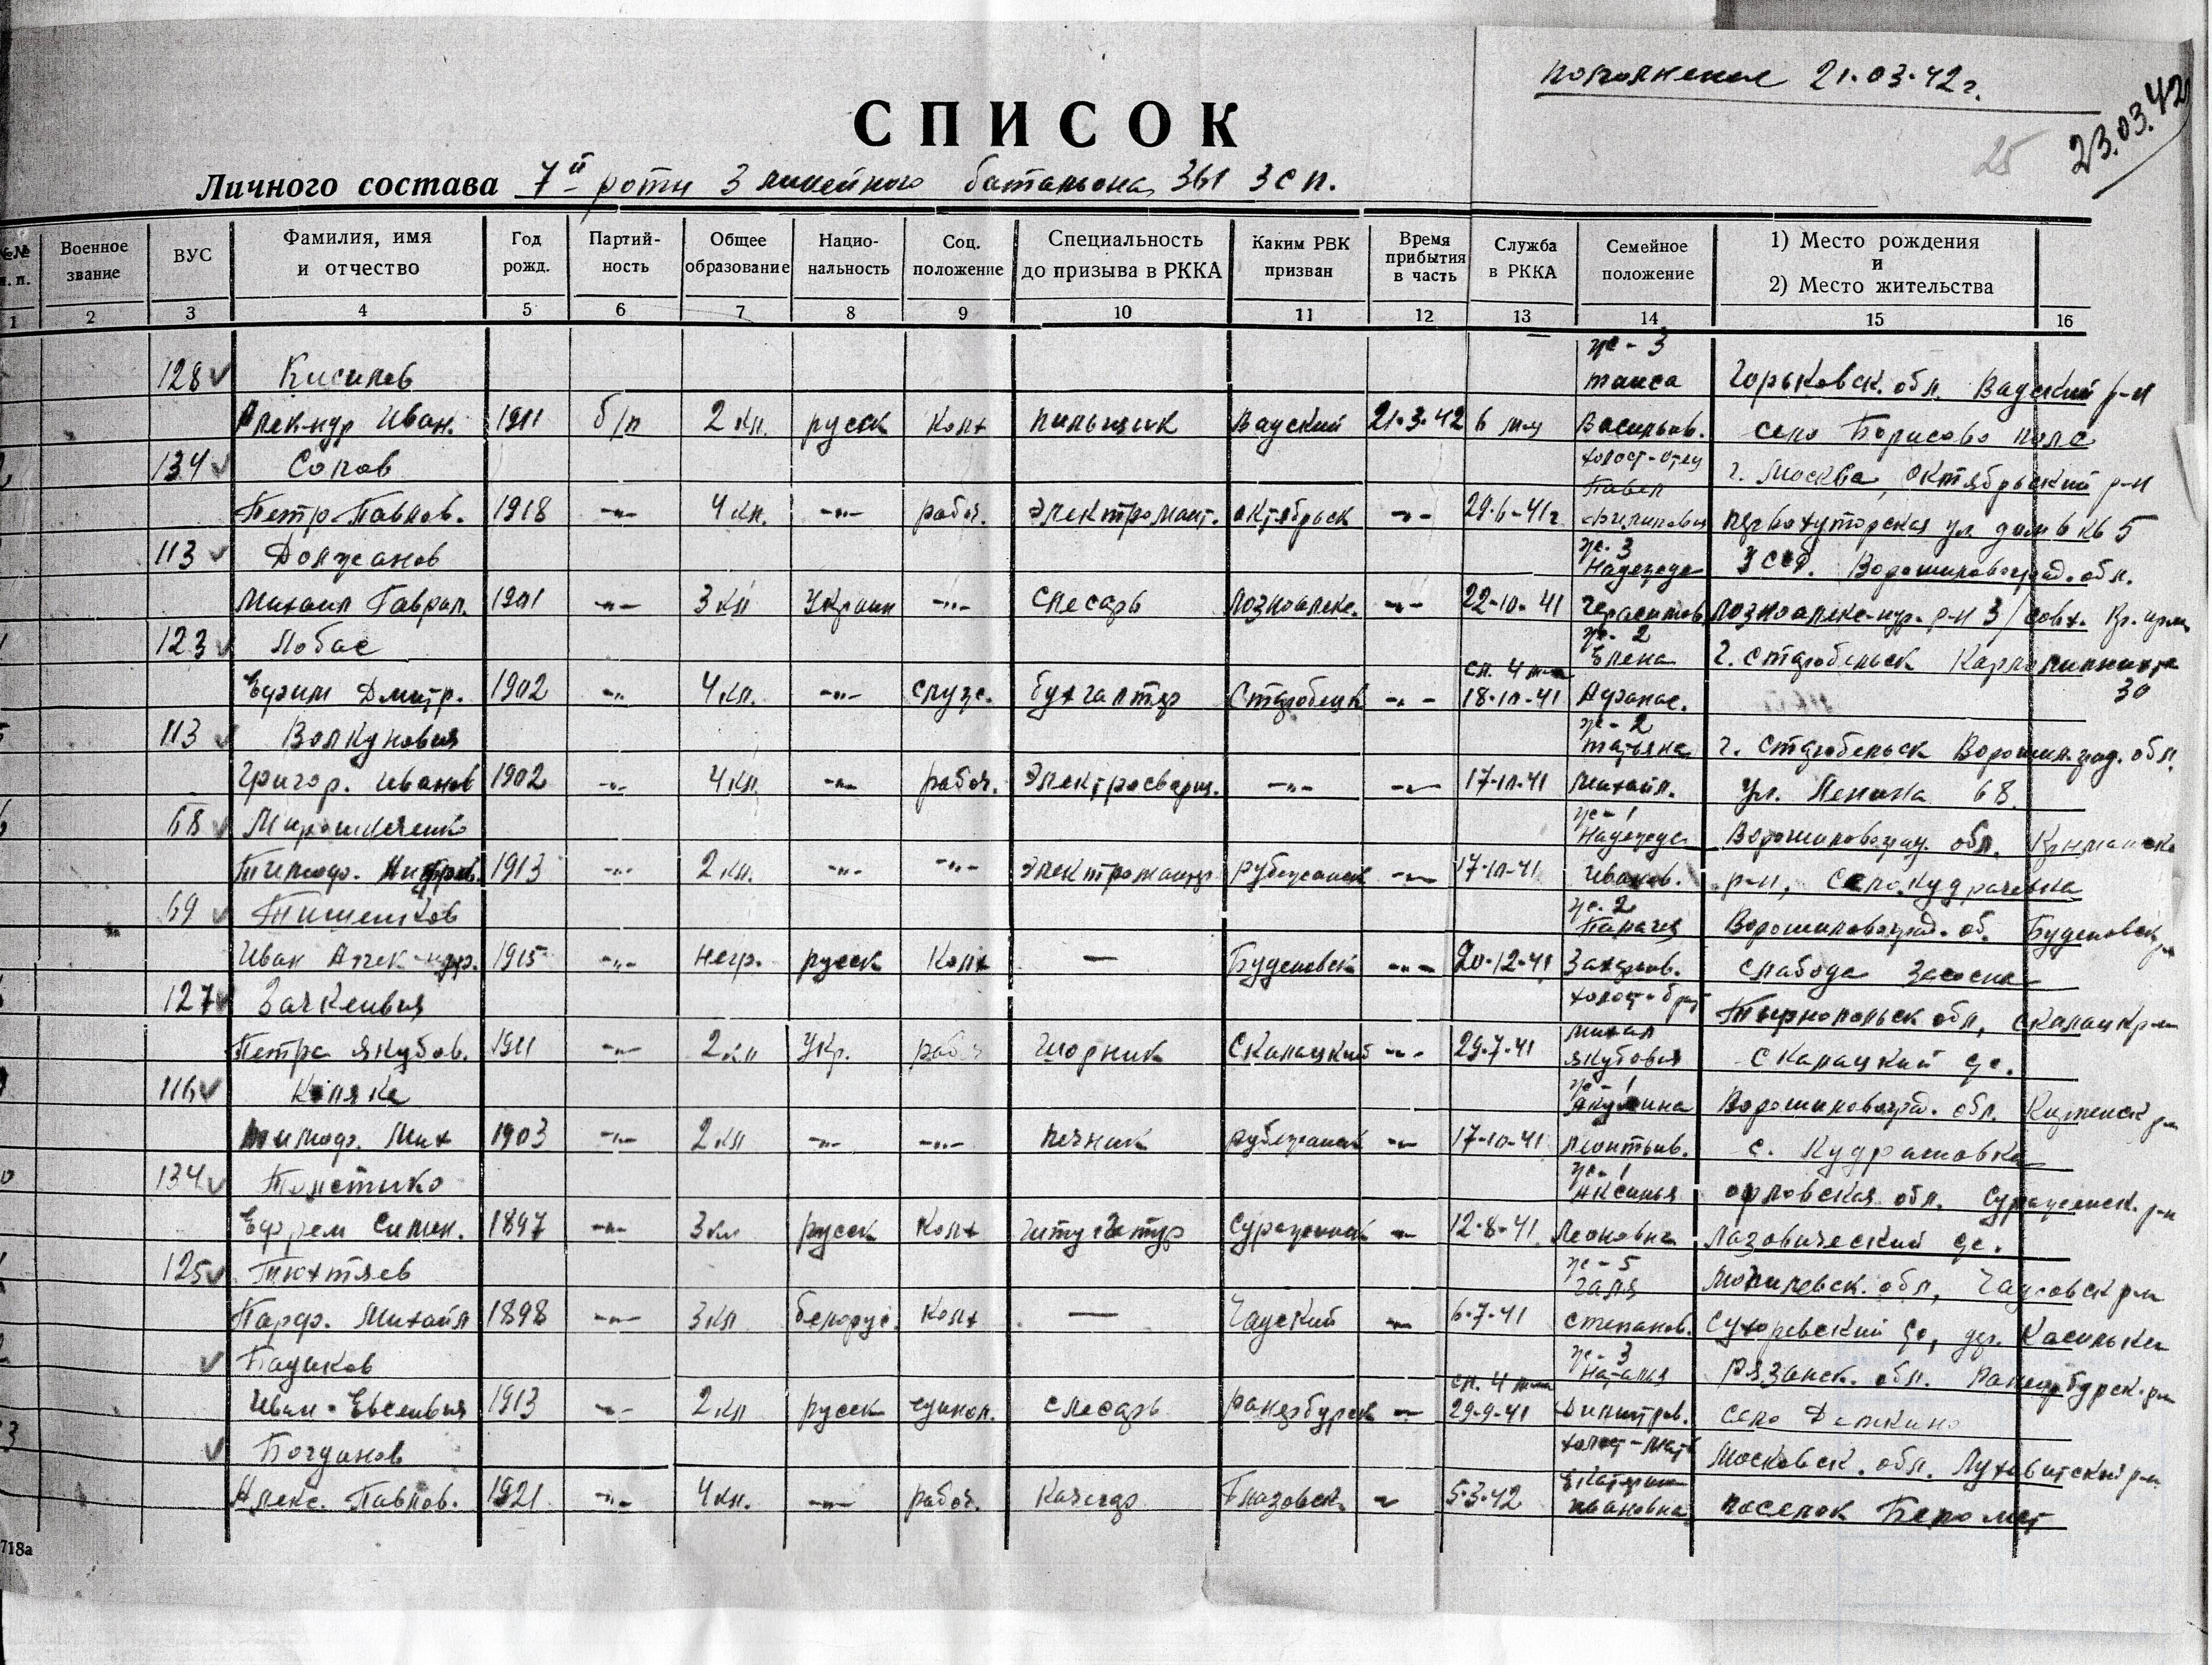 пополнение 21.03.42 г.
23.03.42
25
СПИСОК
Личного состава 7й роты 3 линейного батальона 361 ЗСП.
№№ п. п. Военное звание ВУС Фамилия, имя и отчество Год рожд. Партий-ность Общее образование Нацио-нальность Соц. положение Специальность до призыва в РККА Каким РВК призван Время прибытия в часть Служба в РККА Семейное положение 1) Место рождения и 2) Место жительства
1 2 3 4 5 6 7 8 9 10 11 12 13 14 15 16
ж - 3
128 Кисилев таиса Горьковск. обл. Вадский р-н
Алек-ндр Иван. 1911 б/п 2 кл. русск Колх пильщик Вадский 21.3.42 6 м-ц Васильев. село Борисово поле
134 Сопов холост-отец Павел г. Москва, Октябрьский р-н
Петр Павлов. 1918 -"- 4 кл. -"- рабоч. Электромонт. октябрьск -"- 29-6-41г Филипович ул дом 6 кв 5
113 Должанов ж. 3 Надежда УССР. Ворошиловград. обл.
Михаил Гаврил. 1901 -"- 3 кл Украин -"- слесарь Лозноалекс. -"- 22-10-41 Герасимов. Лозноалекс-ндр. р-н З/совх. Кр.
123 Лобас ж. 2 Елена г. Старобельск Карла либкнехта
Ефим Дмитр. 1902 -"- 4 кл. -"- служ. бухгалтер Старобельск -"- сл. 4 м-ца 18-10-41 Афанас. 30
113 Волкунович ж - 2 татьяна г. Старобельск Ворошил.град. обл.
Григор. Иванов 1902 -"- 4 кл -"- рабоч. Электросварщ. -"- -"- 17-10-41 Михайл. Ул. Ленина 68.
68 Мирошниченко ж - 1 Надежда Ворошиловград. обл.
Тимоф. 1913 -"- 2 кл. -"- -"- Электромонт рубежанск -"- 17-10-41 Иванов. р-н, село Кудрашевка
69 Тишенков ж. 2 Ворошиловград. об. Буденовск р-н
Иван Алек-ндр. 1915 -"- негр. русск Колх — Буденовск -"- 20-12-41 Захаров. слабода Засосна
127 Зачкевич холост-брат Михал Тернопольск обл, скалацк р-н
Петра Якубов. 1911 -"- 2 кл Укр. рабоч Шорник Скалацкий -"- 29-7-41 Якубович Скалацкий ус.
116 Коляка ж - 1 Акулина Ворошиловград. обл. р-н
Тимоф. Мих 1903 -"- 2 кл -"- -"- печник рубежанск -"- 17-10-41 Леонтьив. с. Кудрашовка
134 Толстико ж - 1 Аксинья орловская обл. Суражск. р-н
Ефрем Симен. 1897 -"- 3 кл русск Колх Штукатур Суражский -"- 12-8-41 Леоновна Лазовический ус.
125 Тюхтяев ж - 5 галя Могилевск. обл, Чаусовск р-н
Парф. Михайл 1898 -"- 3 кл белорус. колх — Чауский -"- 6-7-41 степанов. Сухоревский ус, дер.
Падиков ж - 3 Наталья Рязанск. обл. Раненбургск. р-н
Иван Евсеивич 1913 -"- 2 кл русск единол. слесарь раненбургск -"- сл. 4 м-ца 29-9-41 Димитров. село
Богданов холост-мать Московск. обл. Луховитский р-н
Алекс. Павлов. 1921 -"- 4 кл. -"- рабоч. Качегар Глазовск. -"- 5-3-42 Екатерина Ивановна поселок
718а